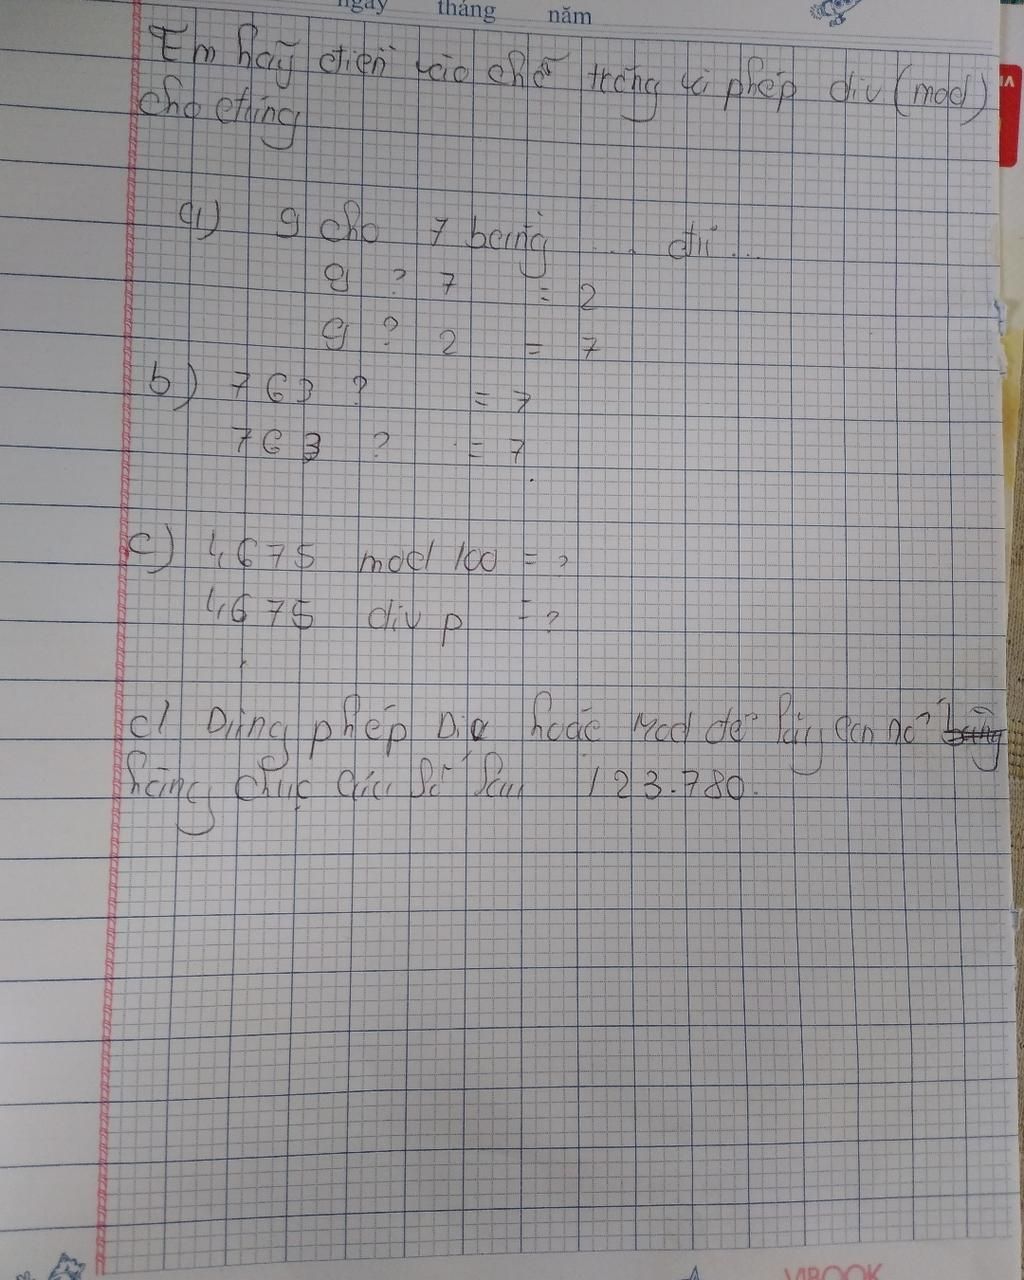 ngày tháng năm
Em hãy điền vào chỗ trống là phép div (mod)
cho đúng
a) 9 cho 7 bằng ... dư ...
9 ? 7 = 2
9 ? 2 = 7
b) 763 ? = 7
763 ? = 7
c) 4675 mod 100 = ?
4675 div p = ?
d) Dùng phép Div hoặc Mod để lấy con số
hàng chục của số sau 123.780.
VIBOOK